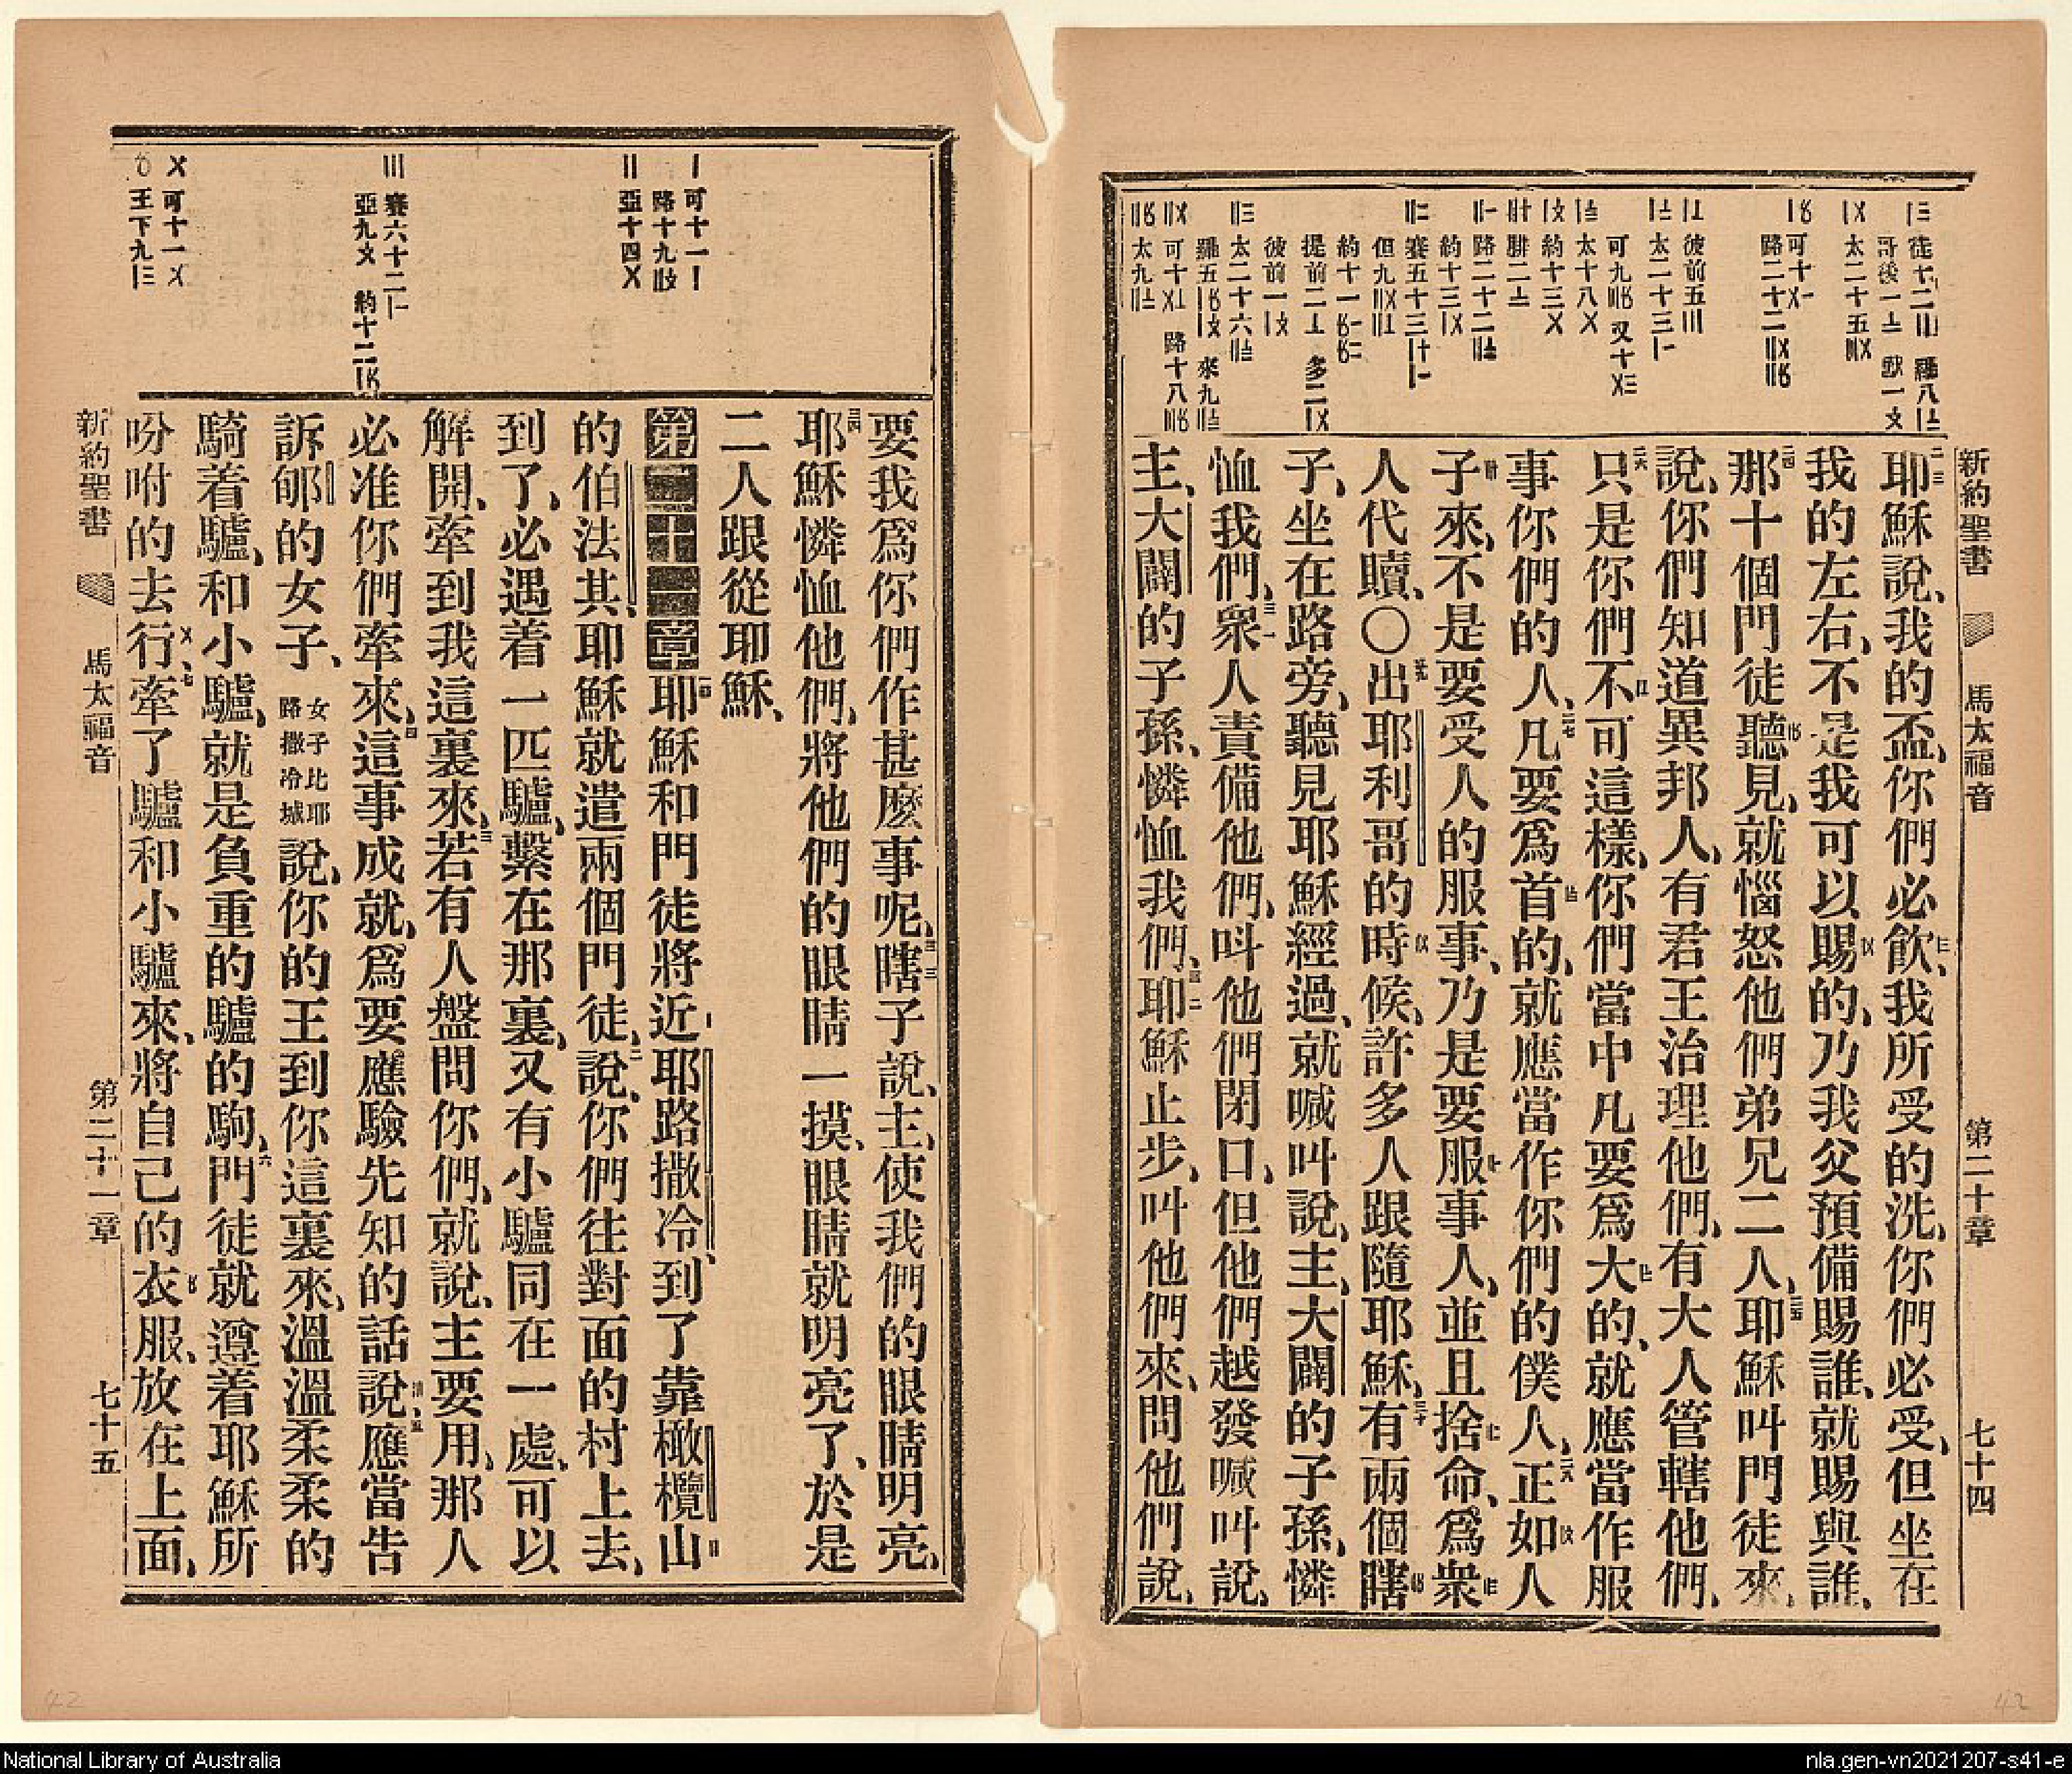 新約聖書 馬太福音 第二十章 七十四
耶穌說、我的盃、你們必飲、我所受的洗、你們必受、但坐在
我的左右、不是我可以賜的、乃我父預備賜誰、就賜與誰、
那十個門徒聽見、就惱怒他們弟兄二人、耶穌叫門徒來、
說、你們知道異邦人、有君王治理他們、有大人管轄他們、
只是你們不可這樣、你們當中凡要爲大的、就應當作服
事你們的人、凡要爲首的、就應當作你們的僕人、正如人
子來、不是要受人的服事、乃是要服事人、並且捨命、爲衆
人代贖、〇出耶利哥的時候、許多人跟隨耶穌、有兩個瞎
子、坐在路旁、聽見耶穌經過、就喊叫說、主、大闢的子孫、憐
恤我們、衆人責備他們、呌他們閉口、但他們越發喊叫說、
主、大闢的子孫、憐恤我們、耶穌止步、叫他們來、問他們說、
要我爲你們作甚麽事呢、瞎子說、主、使我們的眼睛明亮、
耶穌憐恤他們、將他們的眼睛一摸、眼睛就明亮了、於是
二人跟從耶穌、
第二十一章 耶穌和門徒將近耶路撒冷、到了靠橄欖山
的伯法其、耶穌就遣兩個門徒、說、你們往對面的村上去、
到了、必遇着一匹驢、繫在那裏、又有小驢同在一處、可以
解開、牽到我這裏來、若有人盤問你們、就說、主要用、那人
必准你們牽來、這事成就、爲要應驗先知的話說、應當告
訴郇的女子、女子比耶路撒冷城說、你的王到你這裏來、溫溫柔柔的
騎着驢、和小驢、就是負重的驢的駒、門徒就遵着耶穌所
吩咐的去行、牽了驢和小驢來、將自己的衣服、放在上面、
新約聖書 馬太福音 第二十一章 七十五
National Library of Australia
nla.gen-vn2021207-s41-e